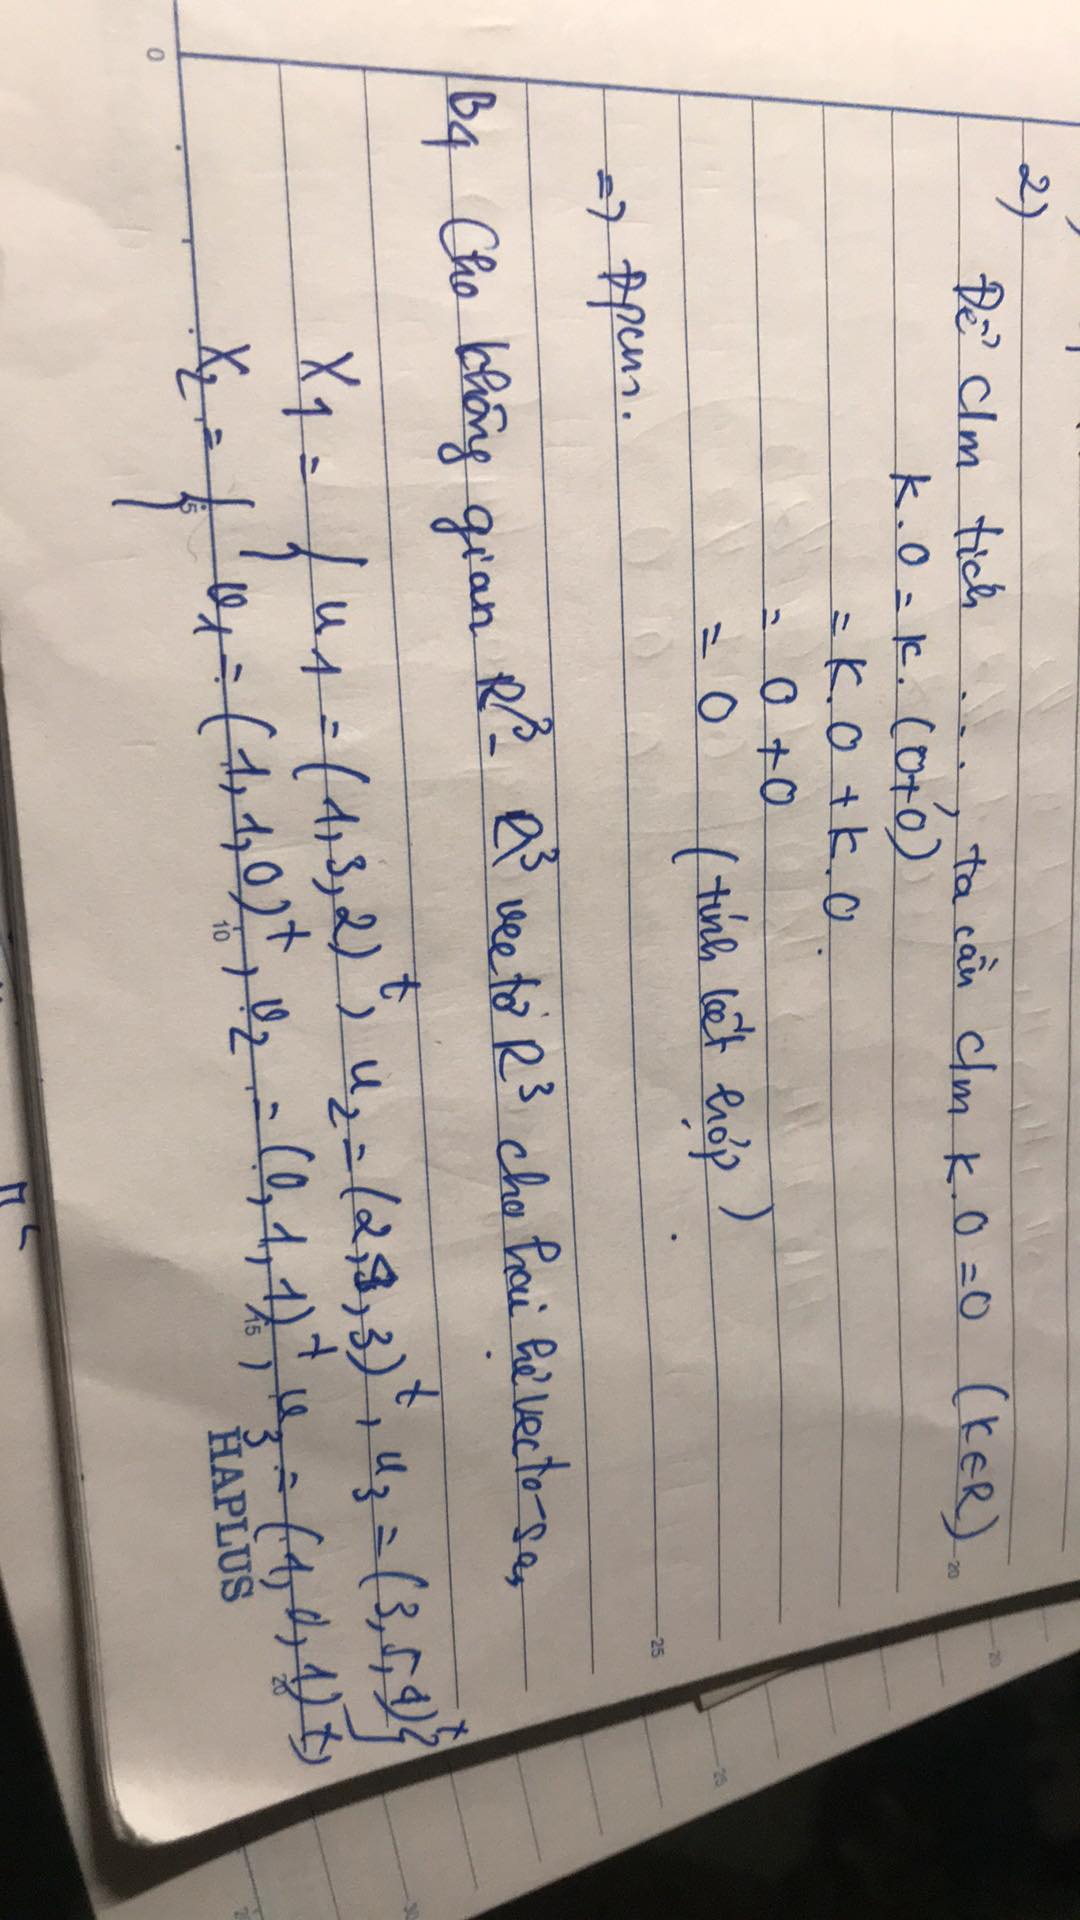 2)
Để C/m tích ...., ta cần C/m K.0=0 (K∈R)
20
K.0 = K.(0+0)
= K.0 + K.0.
= 0 + 0
= 0 (tính kết hợp)
25
=> Đpcm.
B4 Cho không gian R³- R³ vectơ R³ cho hai hệ vecto-sau
X1 = { u1 = (1,3,2)ᵗ, u2 = (2, ,3)ᵗ, u3 = (3,5,4)ᵗ}
X2 = { v1 = (1,1,0)ᵗ, v2 = (0,1,1)ᵗ, v3 = (1,0,1)ᵗ}
0 5 10 15 20
HAPLUS
20
25
30